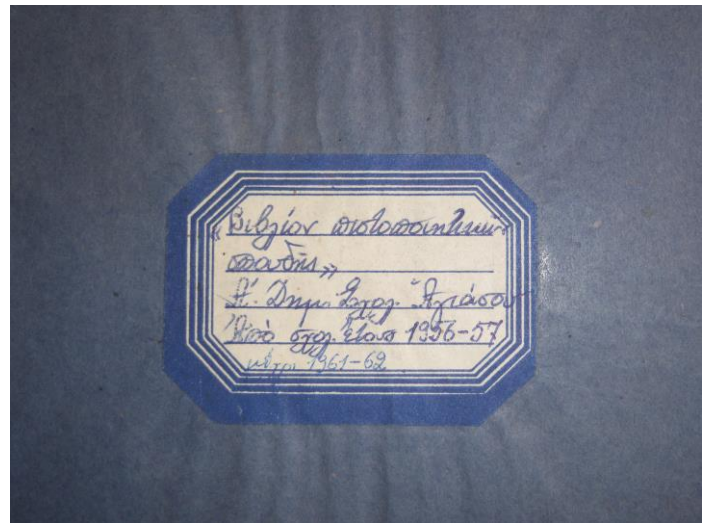 «Βιβλίον πιστοποιητικῶν
σπουδῆς»
Α΄. Δημ. Σχολ. Ἁγιάσου
Ἀπὸ σχολ. ἔτους 1956-57
μέχρι 1961-62